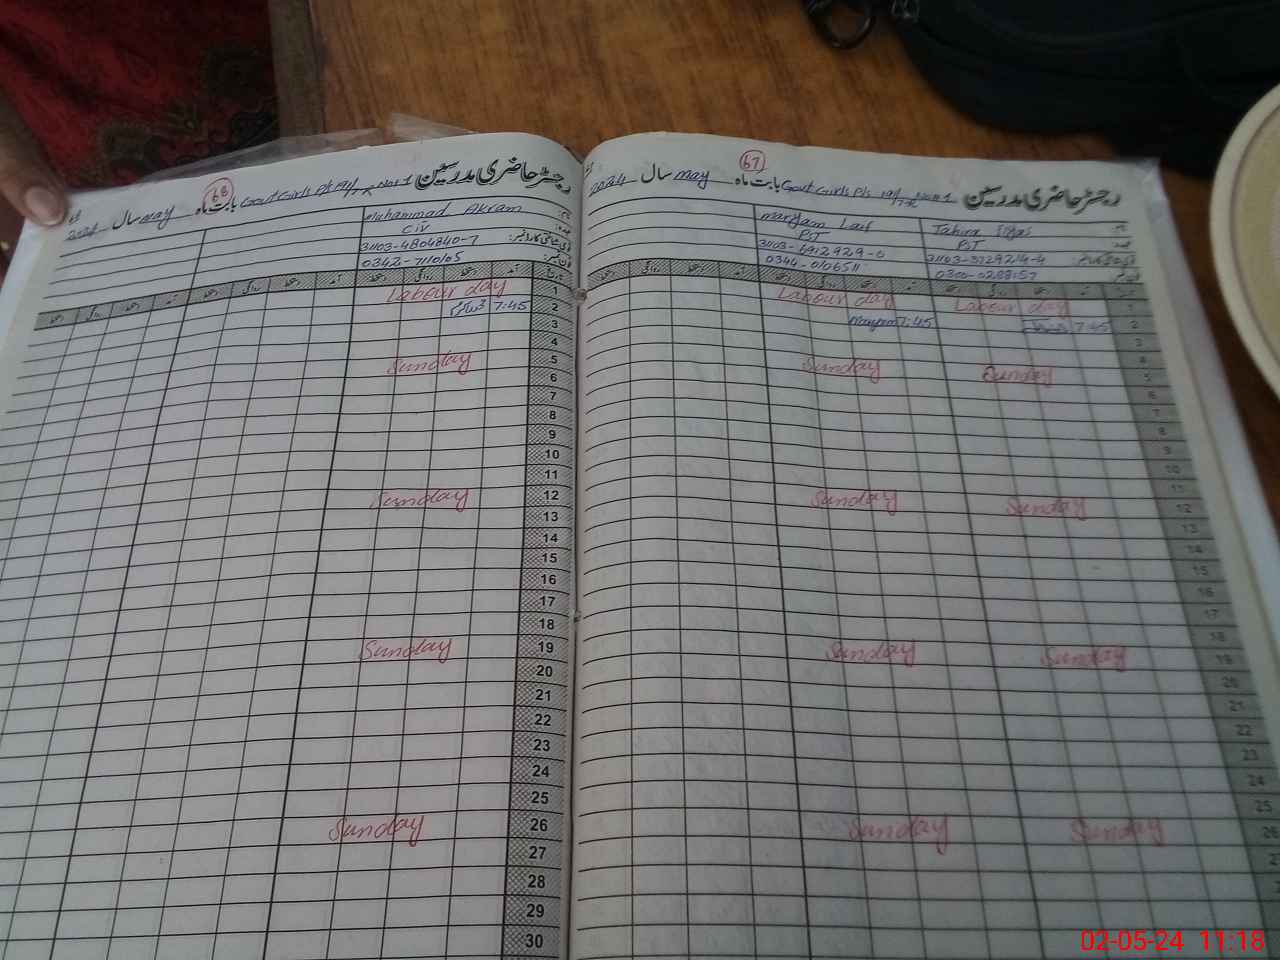 رجسٹر حاضری مدرسین
بابت ماہ may سال 2024
68
Govt Girls P/s
Muhammad Akram
Civ
31103-4804840-7
0342-7110105
آمد روانگی
Labour day
7:45
Sunday
Sunday
Sunday
Sunday
1
2
3
4
5
6
7
8
9
10
11
12
13
14
15
16
17
18
19
20
21
22
23
24
25
26
27
28
29
30
رجسٹر حاضری مدرسین
67
Govt Girls P/s
بابت ماہ may سال 2024
Maryam
Tahira
PST PST
31103-6912929-0
0344-0106511
Labour day Labour day
Maryam 7:45 7:45
Sunday Sunday
Sunday Sunday
Sunday Sunday
Sunday Sunday
1
2
3
4
5
6
7
8
9
10
11
12
13
14
15
16
17
18
19
20
21
22
23
24
25
26
02-05-24 11:18